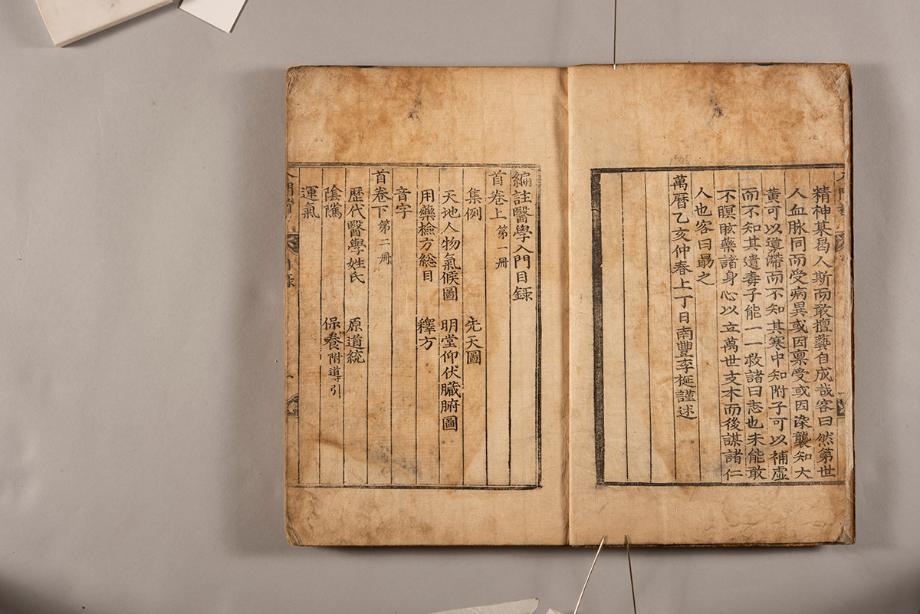 精神某曷人斯而敢擅龔自成哉客曰然第世
人血脉同而受病異或因禀受或因染襲知大
黄可以導滯而不知其寒中知附子可以補虛
而不知其遺毒子能一一救諸曰志也未能敢
不瞑眩藥諸身心以立萬世支本而後謀諸仁
人也客曰勗之
萬曆乙亥仲春上丁日南豐李梴謹述
編註醫學入門目録
首卷上 第一冊
集例 先天圖
天地人物氣候圖 明堂仰伏臟腑圖
用藥檢方緫目 釋方
音字
首卷下 第二冊
歷代醫學姓氏 原道統
陰隲 保養 附導引
運氣